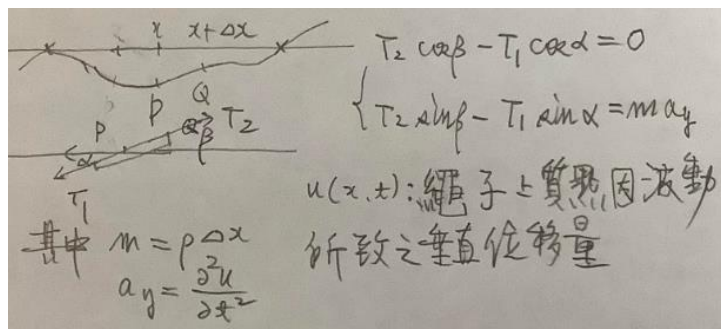 x x+Δx
P Q
P Q β T₂
α
T₁
T₂ cosβ − T₁ cosα = 0
T₂ sinβ − T₁ sinα = m a_y
u(x,t):繩子上質點因波動
所致之垂直位移量
其中 m = ρΔx
a_y = ∂²u/∂t²